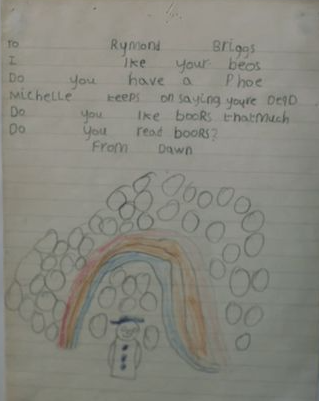 To Rymond Briggs
I lke your beos
Do you have a Phoe
Michelle keeps on saying youre DeaD
Do you lke booRs thatMuch
Do you read booRs?
From Dawn